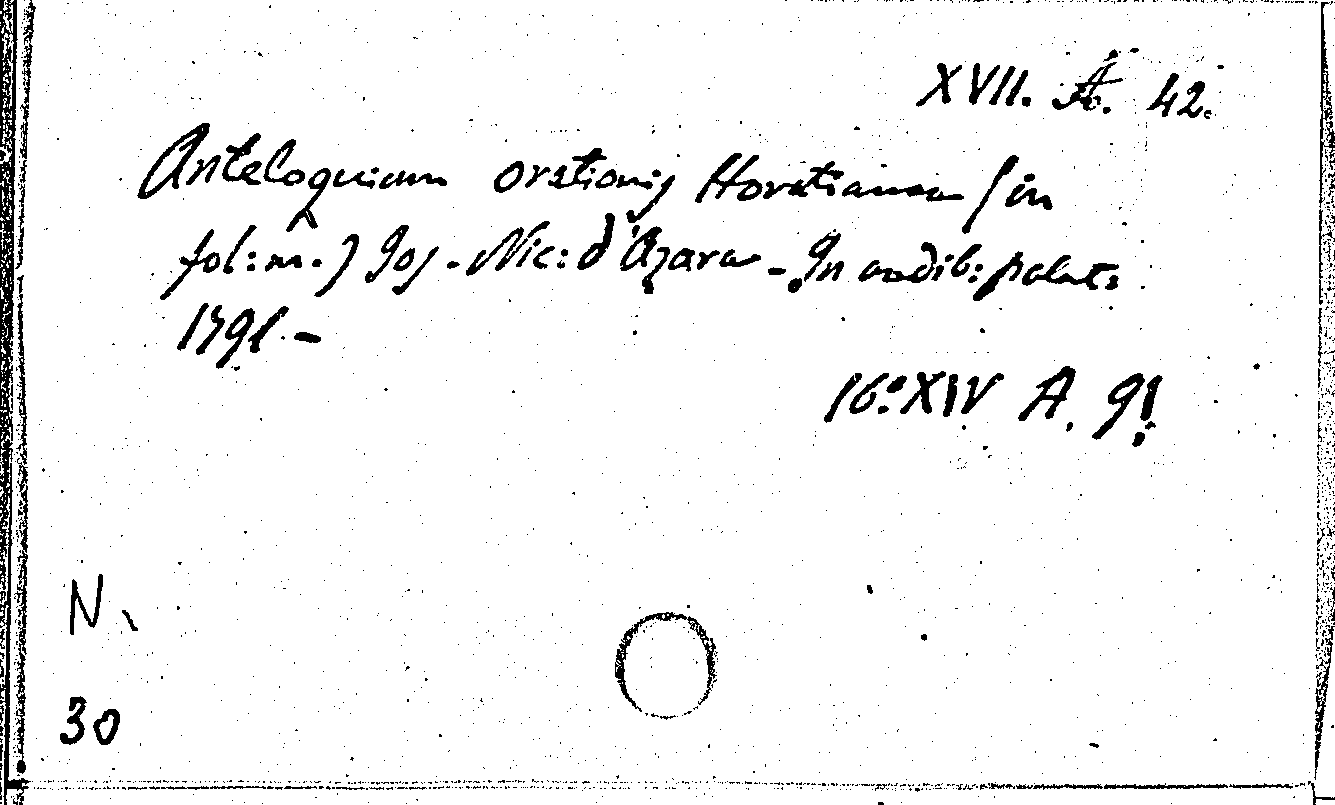 XVII. A. 42.
Anteloquium orationis Horatianae (in
fol: m.) Jos. Nic: d'Azara - In aedib: palat:
1791. -
16.º XIV A. 91.
N.
30